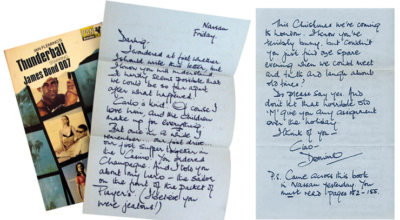 IAN FLEMING'S
Thunderball
JAMES BOND 007
Nassau
Friday
Darling,
I wondered at first whether
I should write this letter, but
I know you will understand.
It hardly seems possible that
we could be so far apart
after what happened!
Carlo is kind. Of course I
love him, and the children
make up for everything.
But once in a while I
remember our first drive,
our first supper together in
the Casino. You ordered
Champagne. And I told you
about my hero - the sailor
on the front of the packet of
Players! (I believe you
were jealous!)
This Christmas we're coming
to London. I know you're
terribly busy, but couldn't
you just find one spare
evening when we could meet
and talk and laugh about
old times?
Do please say yes and
don't let that horrible old
'M' give you any assignment
over the holiday.
I think of you -
Ciao -
Domino
P.S. Came across this book
in Nassau yesterday. You
must read pages 152-155.